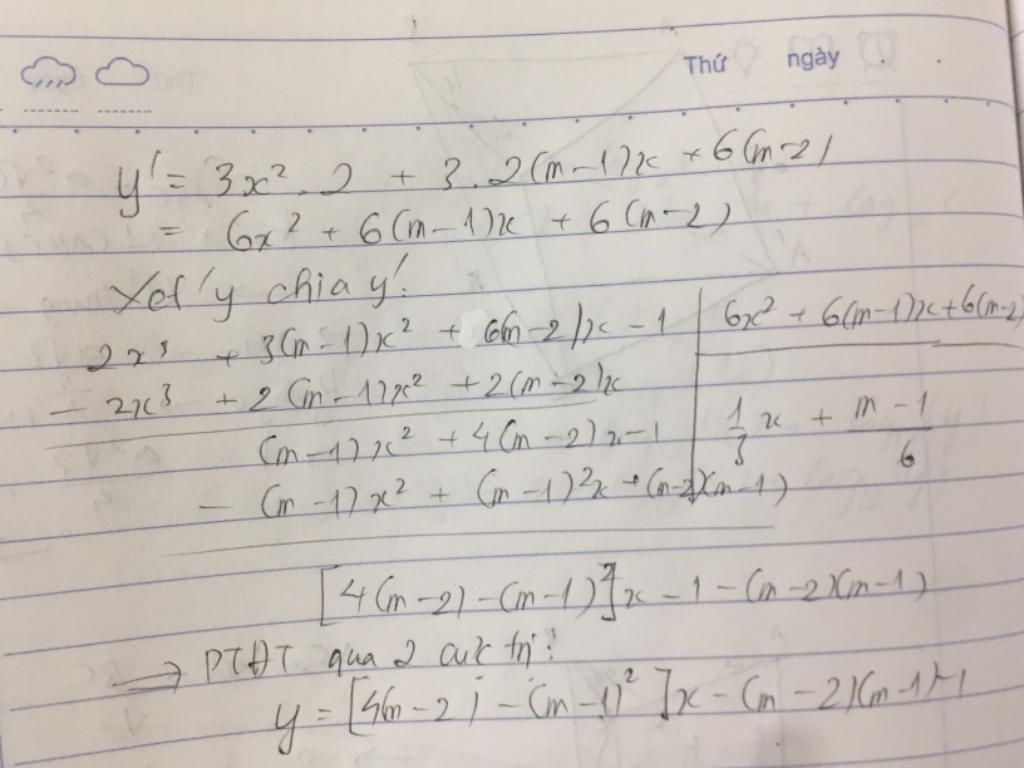 Thứ ngày
y' = 3x². 2 + 3. 2(m-1)x + 6(m-2)
= 6x² + 6(m-1)x + 6(m-2)
Xét y chia y':
2x³ + 3(m-1)x² + 6(m-2)x - 1 | 6x² + 6(m-1)x + 6(m-2)
- 2x³ + 2(m-1)x² + 2(m-2)x
(m-1)x² + 4(m-2)x - 1 | 1/3 x + (m-1)/6
- (m-1)x² + (m-1)²x + (m-2)(m-1)
[4(m-2) - (m-1)²]x - 1 - (m-2)(m-1)
→ PTĐT qua 2 cực trị:
y = [4(m-2) - (m-1)²]x - (m-2)(m-1) - 1